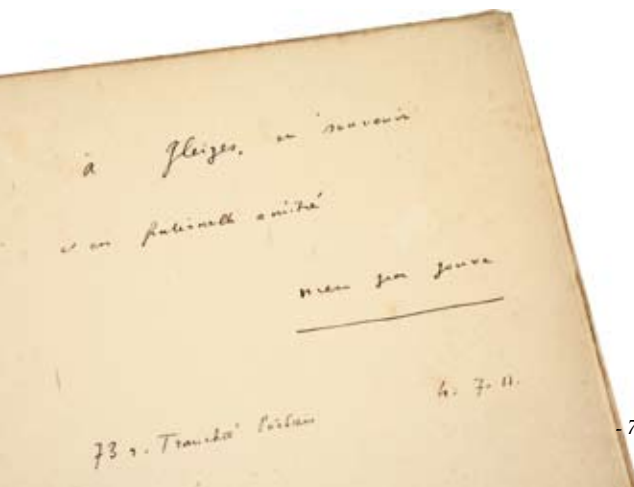 à Gleizes, en souvenir
et en fraternelle amitié
pierre jean jouve
73 r. Tranchée Poitiers 4. 7. 11.
- 7